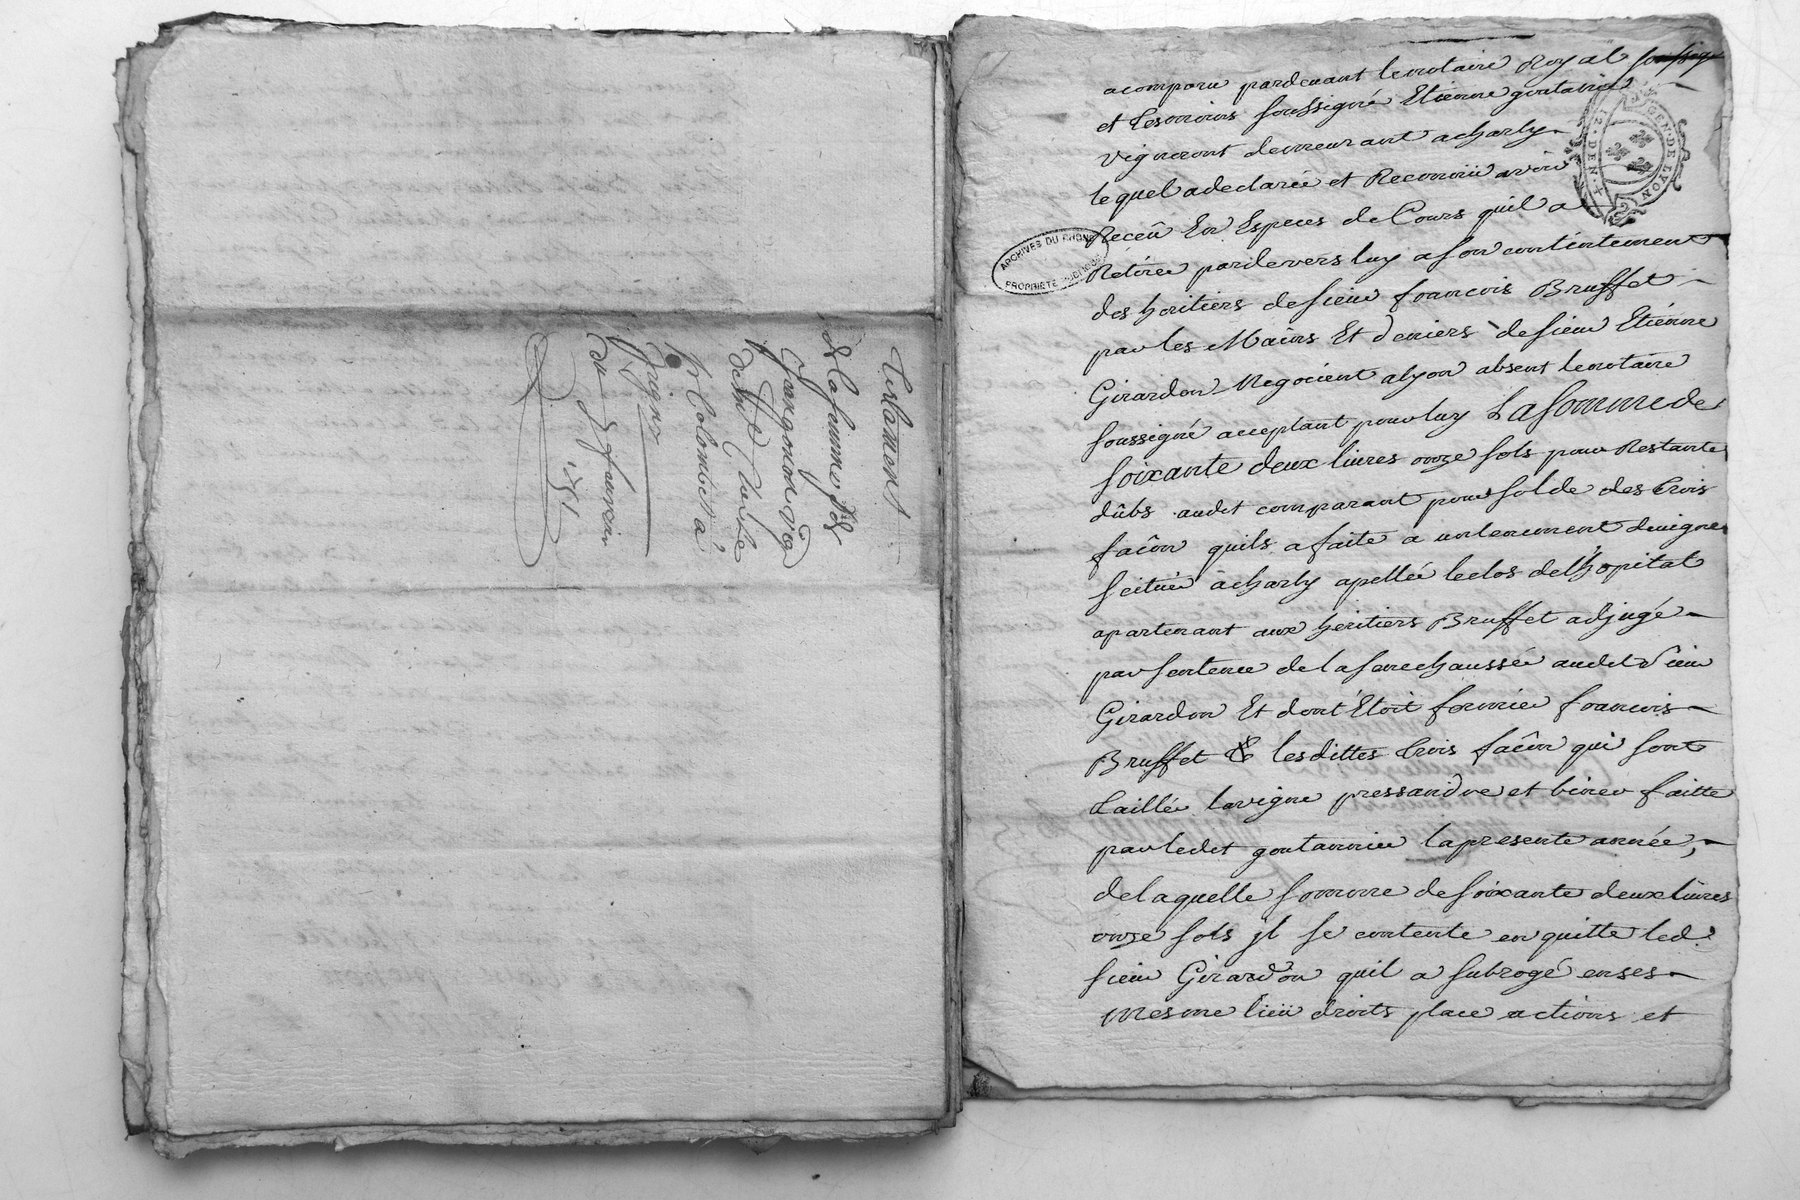 Testament
de la femme de
Jargonon Vig
de Ste Claire
St Colombe à
Grigny
du 5 janvier
1751
acomparu pardevant le notaire Royal
et tesmoins soussigné Etienne gontanier
vigneront demeurant acharly
lequel adeclarée et Reconnü avoir
Receü En Especes de Cours quil a
Retirée pardevers luy ason contentement
des heritiers de sieur francois Brusset
par les Mains Et deniers de sieur Etienne
Girardon Negocient alyon absent lenotaire
soussigné acceptant pour luy La somme de
soixante deux livres onze sols pour Restante
dûbs audt comparant pour solde des trois
facôn quils afaite a untenement devigne
scituée àcharly apellée leclos delhopital
apartenant aux heritiers Brusset adjugé
par sentence de la senechaussée audet sieur
Girardon Et dont Etoit fermier francois
Brusset & lesdittes trois facôn qui sont
taillée lavigne pressandre et biner faitte
par ledet gontannier lapresente année,
delaquelle somme de soixante deux livres
onze sols jl se contente en quitte led.
sieur Girardon quil a subrogé en ses
Mesme lieü droits place actions et
12. DEN.
GEN. DE LYON
ARCHIVES DU RHÔNE
PROPRIÉTÉ PUBLIQUE